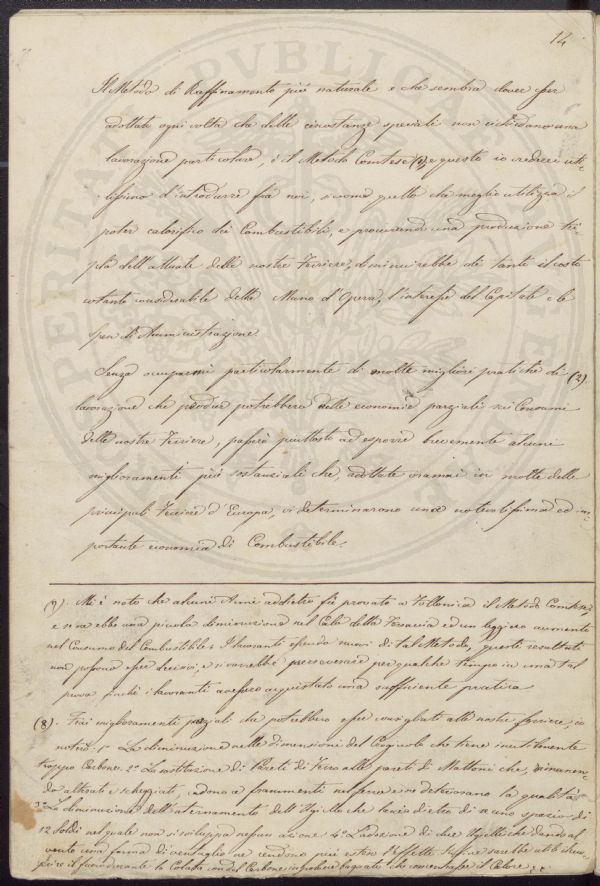 14
Il Metodo di Raffinamento più naturale e che sembra dover esser
adottato ogni volta che delle circostanze speciali non richiedano una
lavorazione particolare, è il Metodo Comtese (1), e questo io crederei uti-
lissimo d'introdurre fra noi, siccome quello che meglio utilizza il
poter calorifico dei Combustibili, e procurando una produzione tri-
pla dell'attuale delle nostre Ferriere, diminuirebbe di tanto il costo
cotanto considerabile della Mano d'Opera, l'interesse del Capitale e le
spese di Amministrazione.
Senza occuparmi particolarmente di molte migliori pratiche di (2)
lavorazione che produr potrebbero delle economie parziali nei Consumi
delle nostre Ferriere, passerò piuttosto ad esporre brevemente alcuni
miglioramenti più sostanziali che, adottati oramai in molte delle
principali Ferriere d'Europa, vi determinarono una notevolissima ed im-
portante economia di Combustibile.
(1). Mi è noto che alcuni Anni addietro fù provato a Follonica il Metodo Comtese,
e se ne ebbe una piccola diminuzione nel Calo della Ferraccia ed un leggiero aumento
nel Consumo del Combustibile: I lavoranti essendo nuovi di tal Metodo, questi resultati
non possono esser decisivi, e si vorrebbe perseverare per qualche tempo in una tal
prova finchè i lavoranti avessero acquistato una sufficiente pratica.
(2). Frai miglioramenti parziali che potrebbero esser consigliati alle nostre ferriere, io
noterò: 1° La diminuzione nelle dimensioni del Crogiuolo che tiene inutilmente
troppo Carbone. 2° La sostituzione di Pareti di Ferro alle pareti di Mattoni che, rimanen-
do alterati e scheggiati, cadono a frammenti e ne deteriorano la qualità
3° La diminuzione dell'internamento dell'Ugello che lascia dietro di se uno spazio di
12 Soldi nel quale non si sviluppa nessuna azione. 4° L'adozione di due Ugelli che dando al
vento una forma di ventaglio ne rendono più esteso l'effetto.